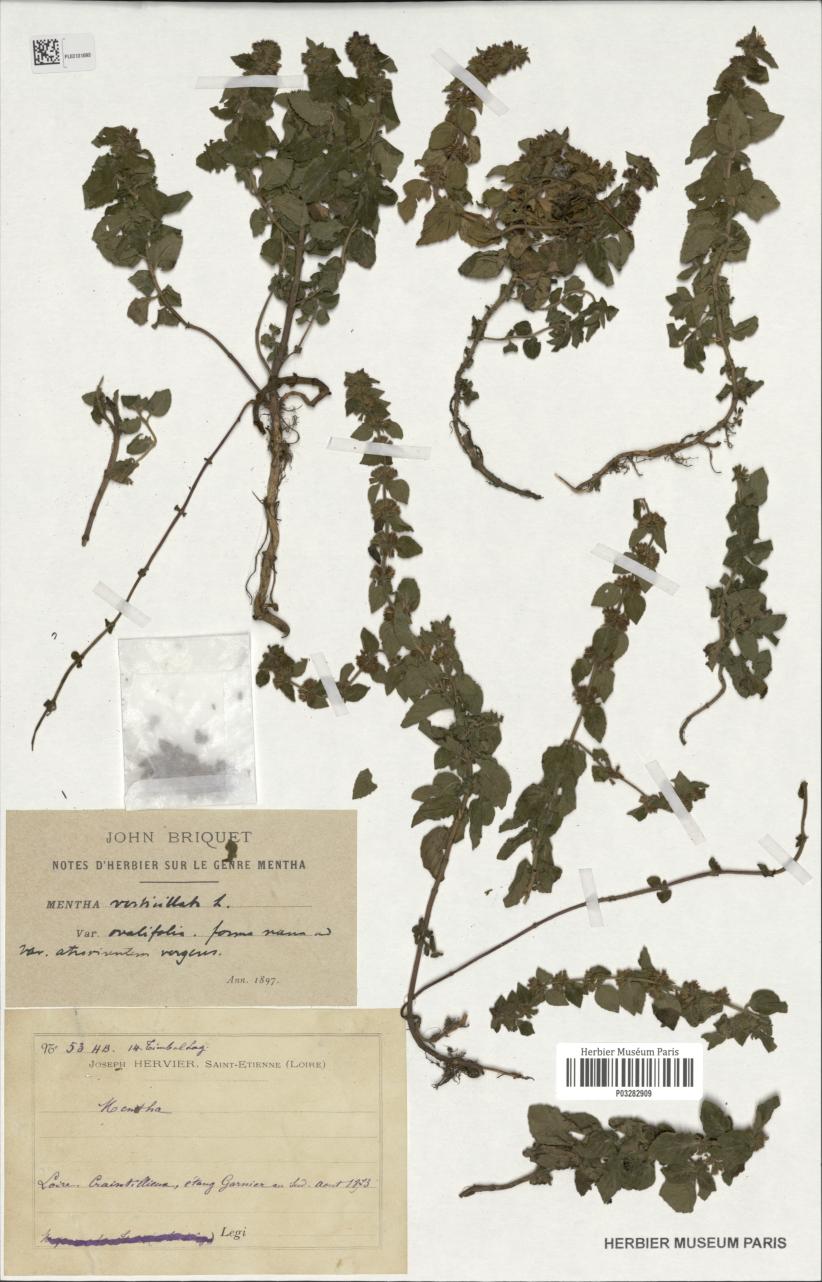 PL02101693
JOHN BRIQUET
NOTES D'HERBIER SUR LE GENRE MENTHA
MENTHA verticillata L.
Var. ovalifolia. forma nana ad
var. atrovirentem vergens.
Ann. 1897.
No 53 HB. 14. Timbal Lag.
JOSEPH HERVIER, SAINT-ETIENNE (LOIRE)
Mentha
Loire. Craintilleux, étang Garnier au Sud. Aout 1873
Legi
Herbier Muséum Paris
P03282909
HERBIER MUSEUM PARIS